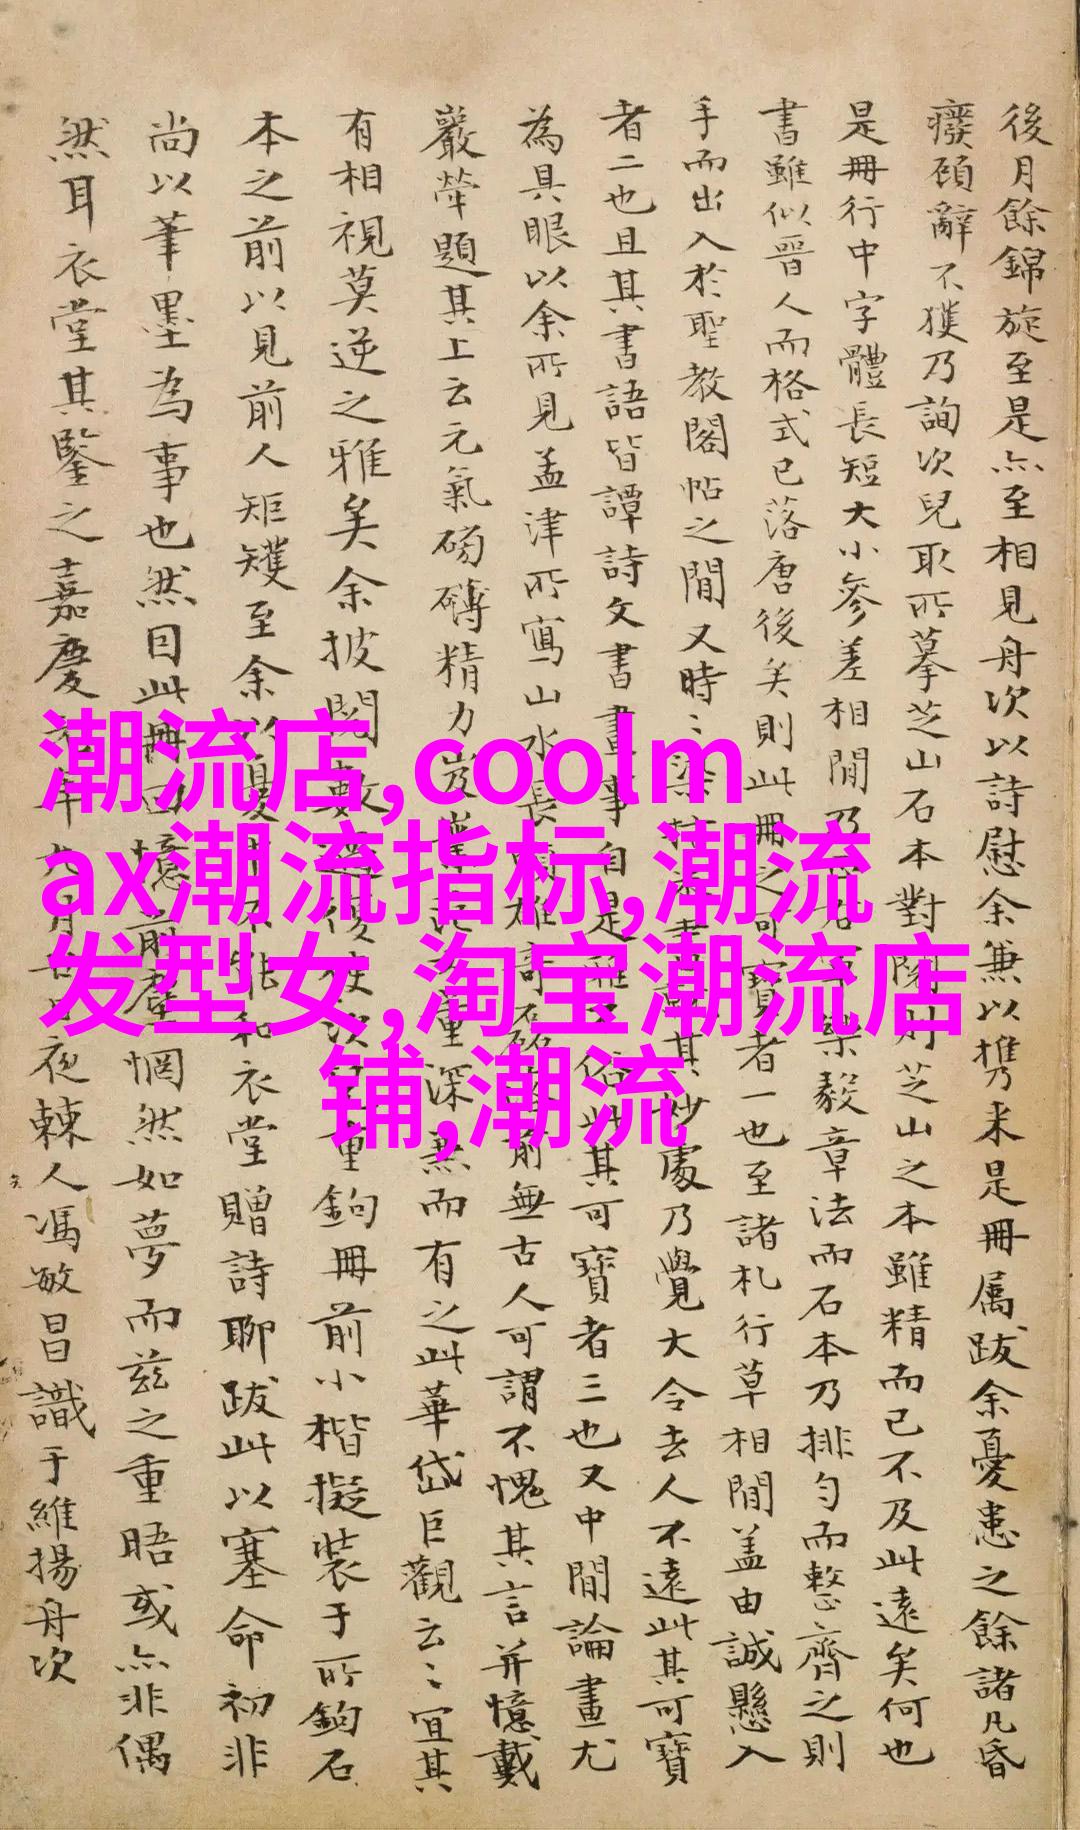 後月餘錦旋至是亦至相見舟次以詩慰余兼以携来是冊属跋余憂患之餘諸凡昏
癈頋辭不獲乃詢次兒取所摹芝山石本對閱則芝山之本雖精而已不及此遠矣何也
是冊行中字體長短大小參差相間乃 樂毅章法而石本乃排勻而整齊之則
書雖似晋人而格式已落唐後矣則此冊之可寶者一也至諸札行草相間盖由誠懸入
手而出入於聖教閣帖之間又時〻染 其妙處乃覺大令去人不遠此其可寶
者二也且其書語皆譚詩文書畫事自是雅 俗此其可寶者三也又中間論畫尤
為具眼以余所見孟津所寫山水長 雄奇磊 前無古人可謂不愧其言并憶戴
巖犖題其上云元氣磅礴精力 深 而有之此華岱巨觀云〻宜其
有相視莫逆之雅矣余披閱數過復 次 重鉤冊前小楷擬裝于所鉤石
本之前以見前人矩矱至余以憂 不 和衣堂贈詩聊跋此以塞命初非
尚以筆墨為事也然因此冊回憶前塵惘然如夢而茲之重晤或亦非偶
然耳衣堂其鑒之嘉慶 年 月 夜棘人馮敏昌識于維揚舟次
潮流店,coolm
ax潮流指标,潮流
发型女,淘宝潮流店
铺,潮流